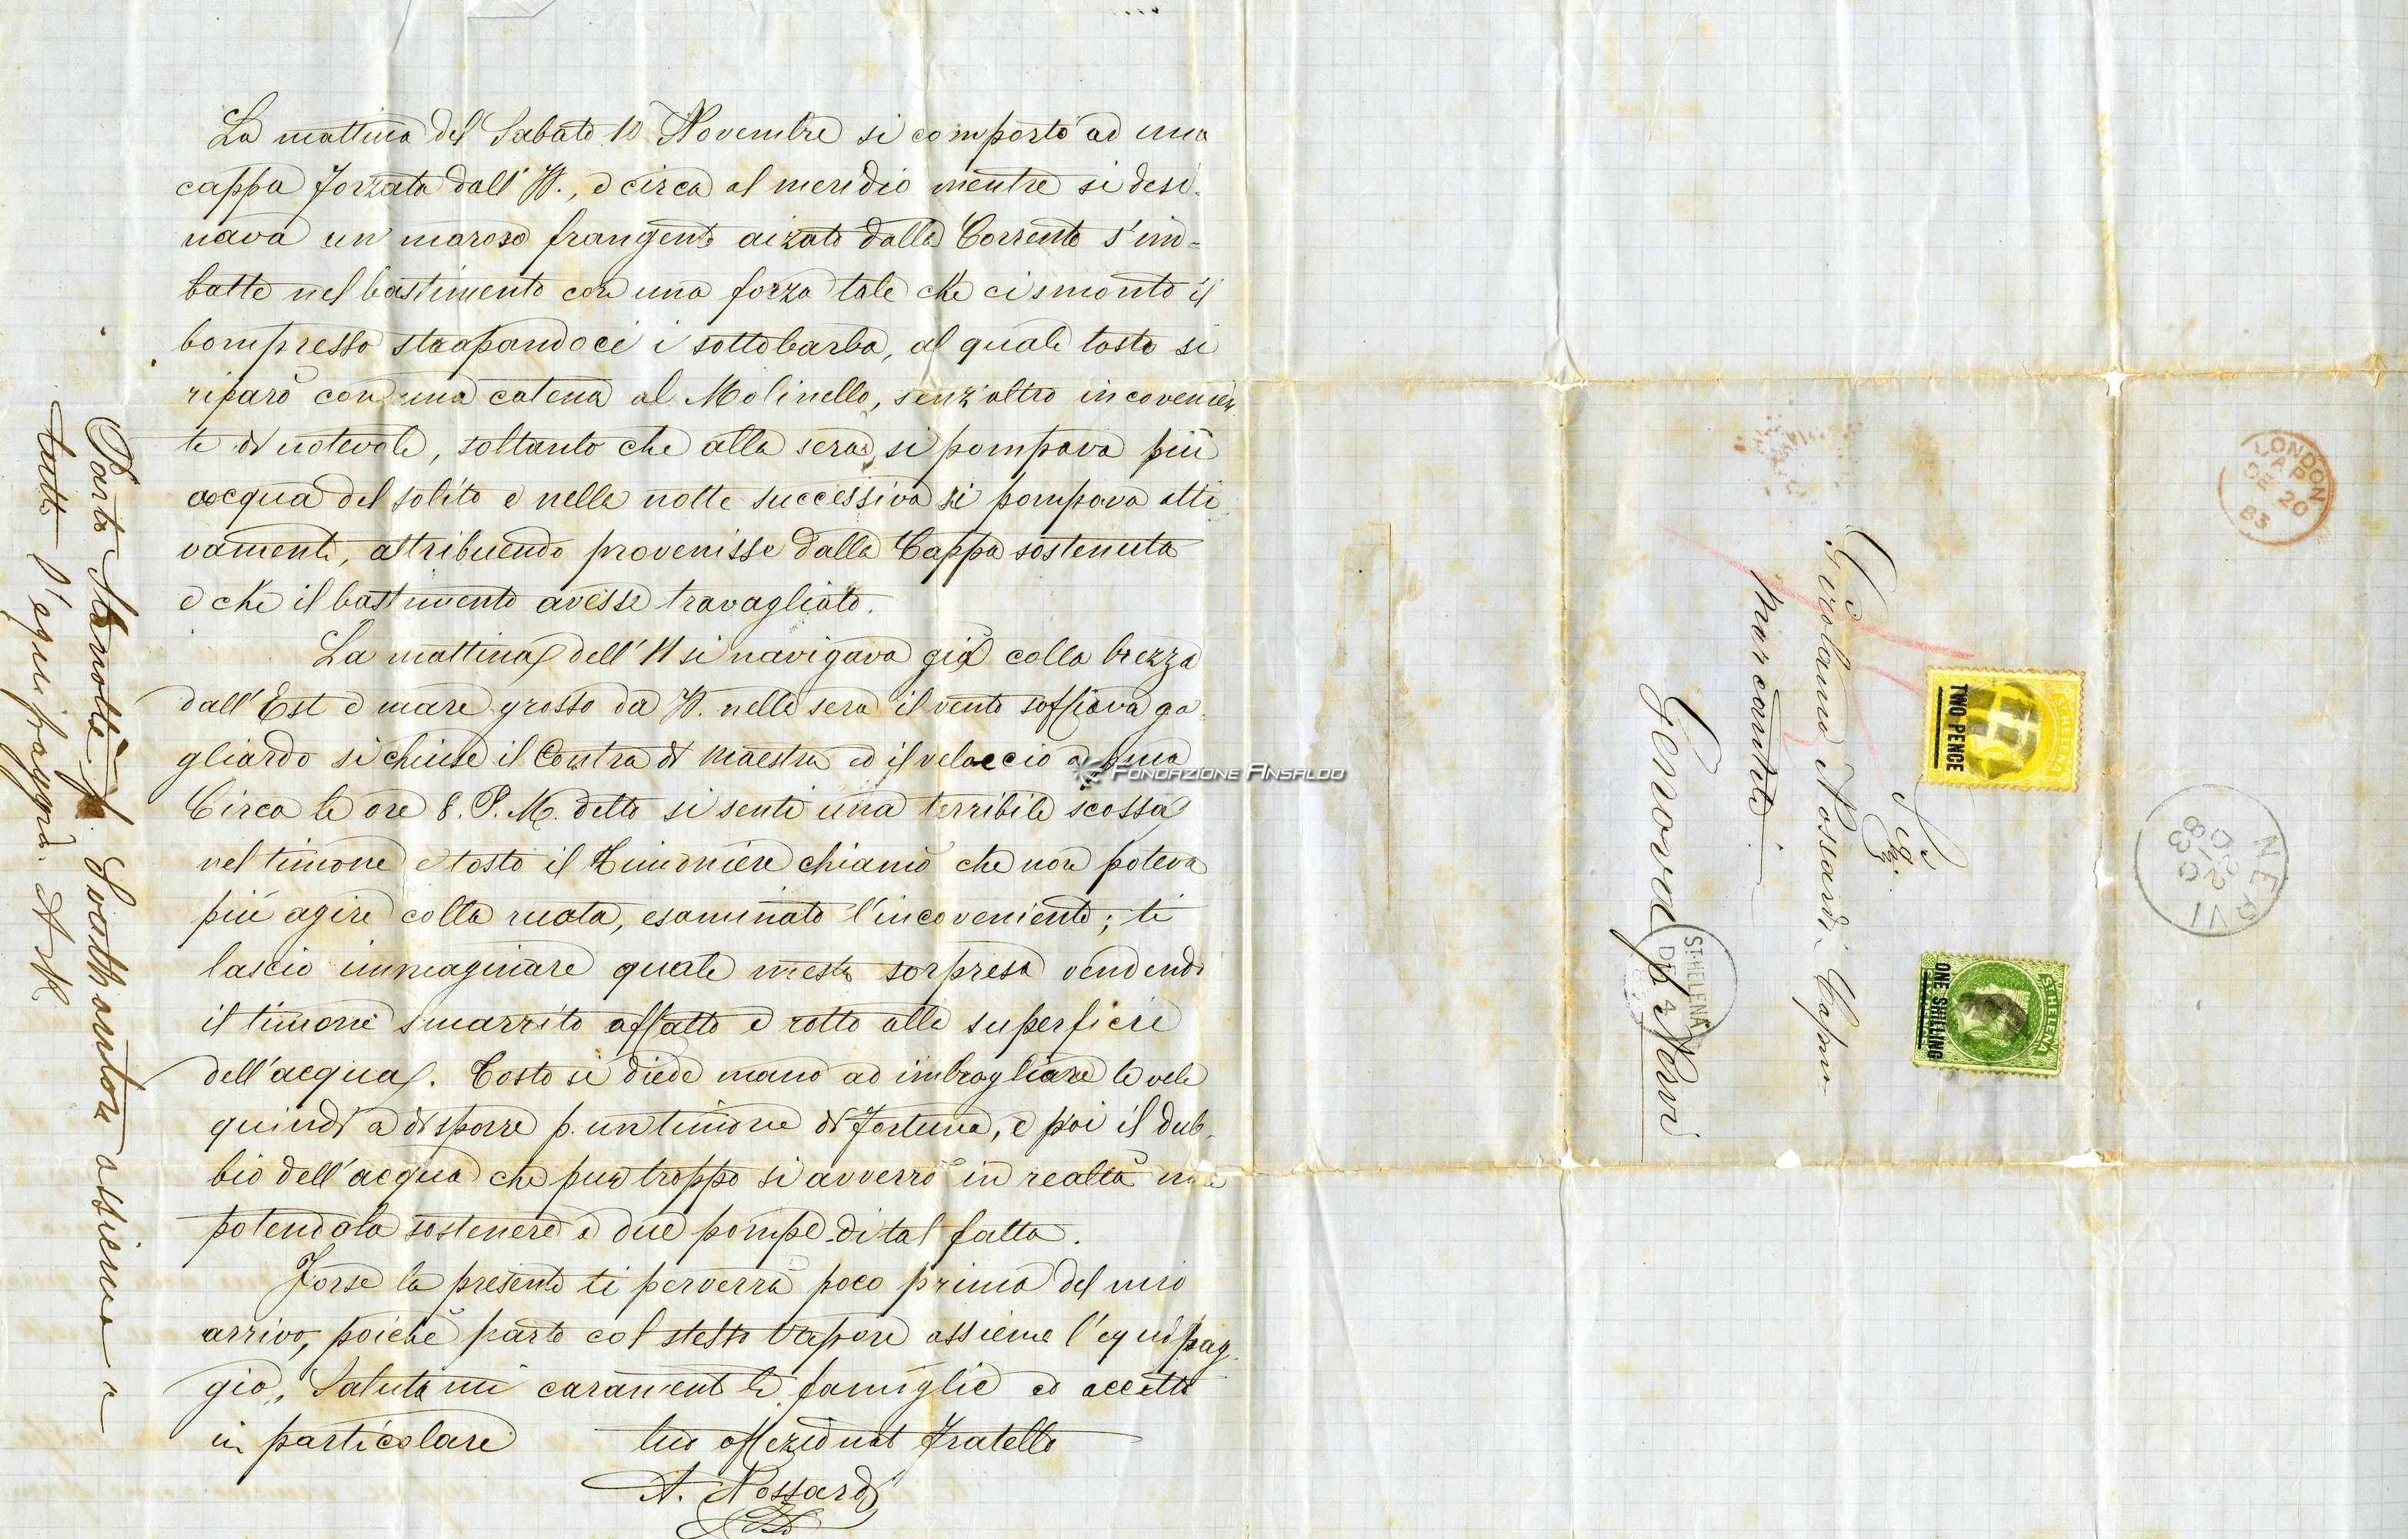 La mattina del Sabato 10 Novembre si comportò ad una
cappa forzata dall' W., e circa al meridio mentre si desi-
nava un maroso frangente aizato dalla Corrente s'im-
batte nel bastimento con una forza tale che ci smontò il
bompresso strapandoci i sottobarba, al quale tosto si
riparò con una catena al Molinello, senz'altro incovenien
te di notevole, soltanto che alla sera si pompava più
acqua del solito e nella notte successiva si pompava atti
vamente, attribuendo provenisse dalla Cappa sostenuta
e che il bastimento avesse travagliato.
La mattina dell' 11 si navigava già colla brezza
dall' Est e mare grosso da W. nella sera il vento soffiava ga
gliardo si chiuse il Contra di maestra ed il velaccio a prua
Circa le ore 8. P. M. detto si sentì una terribile scossa
nel timone e tosto il timoniere chiamò che non poteva
più agire colla ruota, esaminato l'incoveniente; ti
lascio immaginare quale mesta sorpresa vendendo
il timone smarrito affatto e rotto alla superficie
dell'acqua. Tosto si diede mano ad imbrogliare le vele
quindi a disporre p. un timone di fortuna, e poi il dub-
bio dell'acqua che pur troppo si avverrò in realtà non
potendola sostenere e due pompe di tal fatta.
Forse la presente ti perverrà poco prima del mio
arrivo, poichè parto col stesso Vapore assieme l'equipag-
gio, Salutami caramente le famiglie ed accetta
in particolare tuo affezionat Fratello
A. Nossardi
Parto Stanotte p. Southampton assieme a
tutto l'equipaggio. A N
FONDAZIONE ANSALDO
Sig.
Girolamo Nossardi Capno
mercantile
Genova p Nervi
ST HELENA
TWO PENCE
ST HELENA
ONE SHILLING
ST HELENA
DE 4
LONDON
AP
DE 20
83
NERVI
22 DIC
83